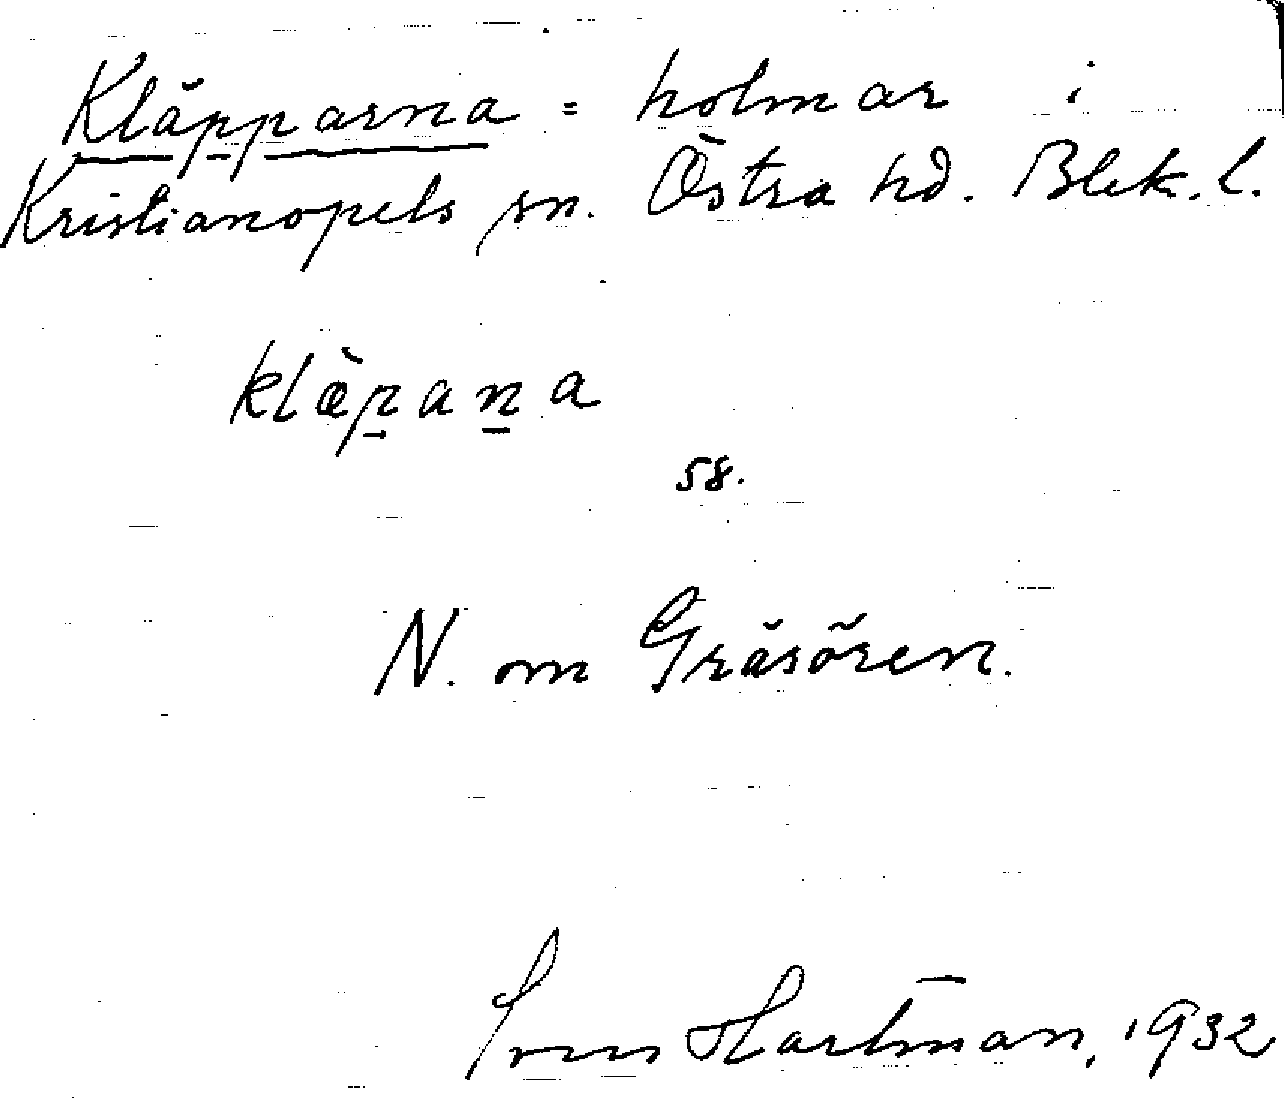 Kläpparna = holmar i
Kristianopels sn. Östra hd. Blek. l.
klæ̀pana
58.
N. om Gräsören.
Sven Hartman, 1932